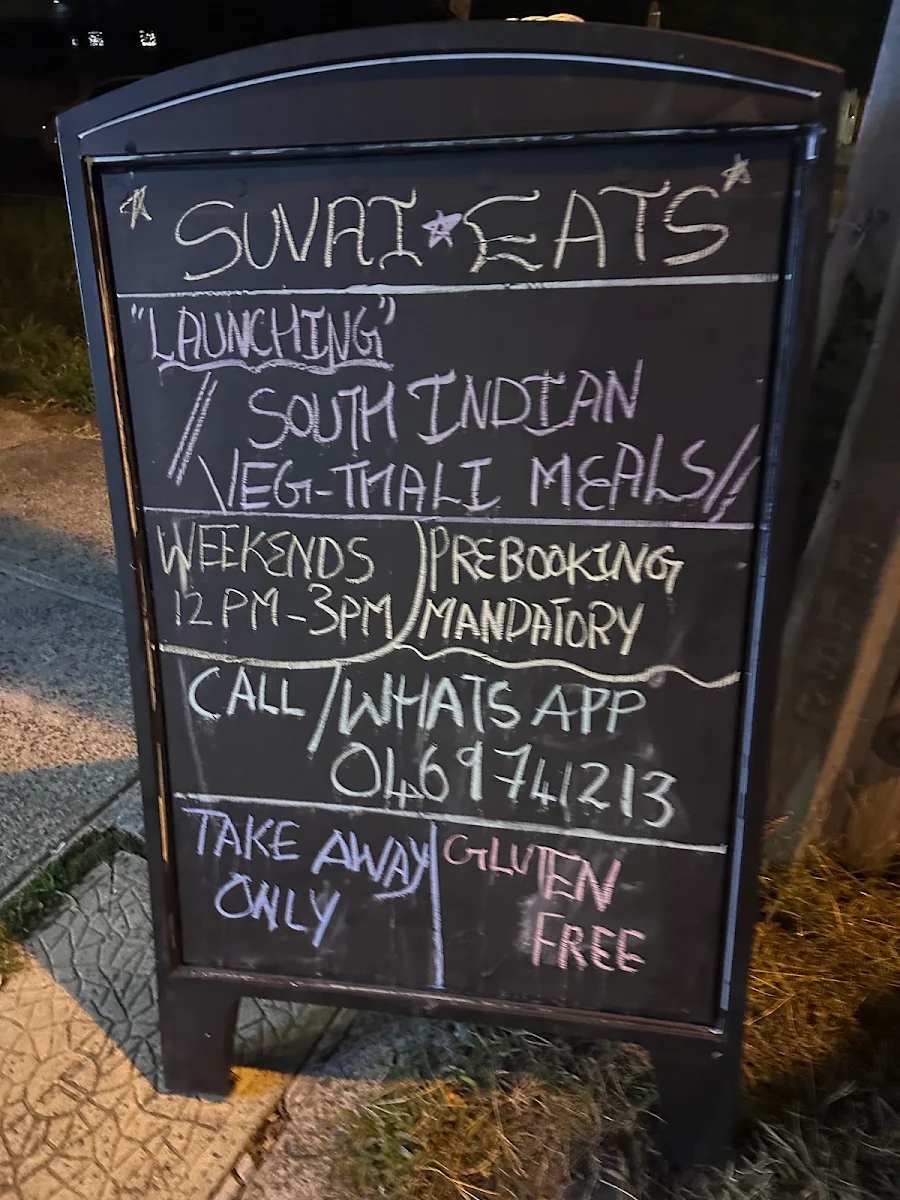 "SUVAI EATS"
"LAUNCHING"
// SOUTH INDIAN
VEG-THALI MEALS//
WEEKENDS
12 PM-3PM
PREBOOKING
MANDATORY
CALL/WHATS APP
0469741213
TAKE AWAY
ONLY
GLUTEN
FREE